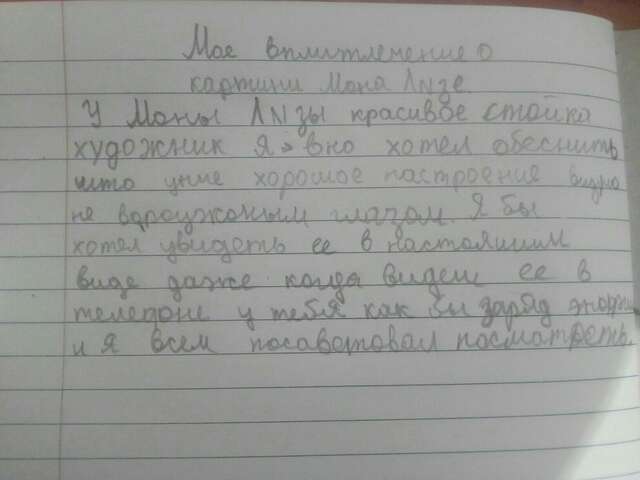 Мое впмитлемение о
картини Мона Лизе
У Моны Лизы красивое стойка
художник явно хотел обеснить
што уние хорошое настроение видно
не вороужоным глазом. Я бы
хотел увидеть ее в настояшим
виде даже когда видеш ее в
телепоне у тебя как бы заряд
и я всем посаветовал посматреть.